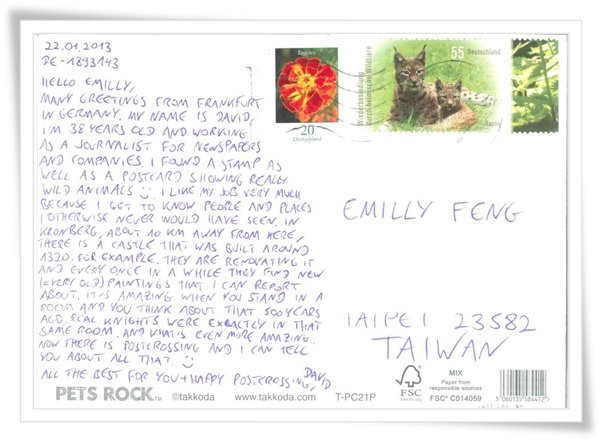 22.01.2013
DE-1893143
HELLO EMILLY,
MANY GREETINGS FROM FRANKFURT
IN GERMANY. MY NAME IS DAVID,
I'M 38 YEARS OLD AND WORKING
AS A JOURNALIST FOR NEWSPAPERS
AND COMPANIES. I FOUND A STAMP AS
WELL AS A POSTCARD SHOWING REALLY
WILD ANIMALS :). I LIKE MY JOB VERY MUCH
BECAUSE I GET TO KNOW PEOPLE AND PLACES
I OTHERWISE NEVER WOULD HAVE SEEN. IN
KRONBERG, ABOUT 10 KM AWAY FROM HERE,
THERE IS A CASTLE THAT WAS BUILT AROUND
1320, FOR EXAMPLE. THEY ARE RENOVATING IT
AND EVERY ONCE IN A WHILE THEY FIND NEW
(=VERY OLD) PAINTINGS THAT I CAN REPORT
ABOUT. IT IS AMAZING WHEN YOU STAND IN A
ROOM AND YOU THINK ABOUT THAT 500 YEARS
AGO REAL KNIGHTS WERE EXACTLY IN THAT
SAME ROOM. AND WHAT'S EVEN MORE AMAZING:
NOW THERE IS POSTCROSSING AND I CAN TELL
YOU ABOUT ALL THAT. :)
ALL THE BEST FOR YOU + HAPPY POSTCROSSING,
DAVID
Tagetes
20
Deutschland
55 Deutschland
Wiederbesiedlung
durch heimische Wildtiere
Luchs
EMILLY FENG
TAIPEI 23582
TAIWAN
PETS ROCK™ ©takkoda www.takkoda.com T-PC21P
FSC
www.fsc.org
MIX
Paper from
responsible sources
FSC® C014059
5 060135 584412 >